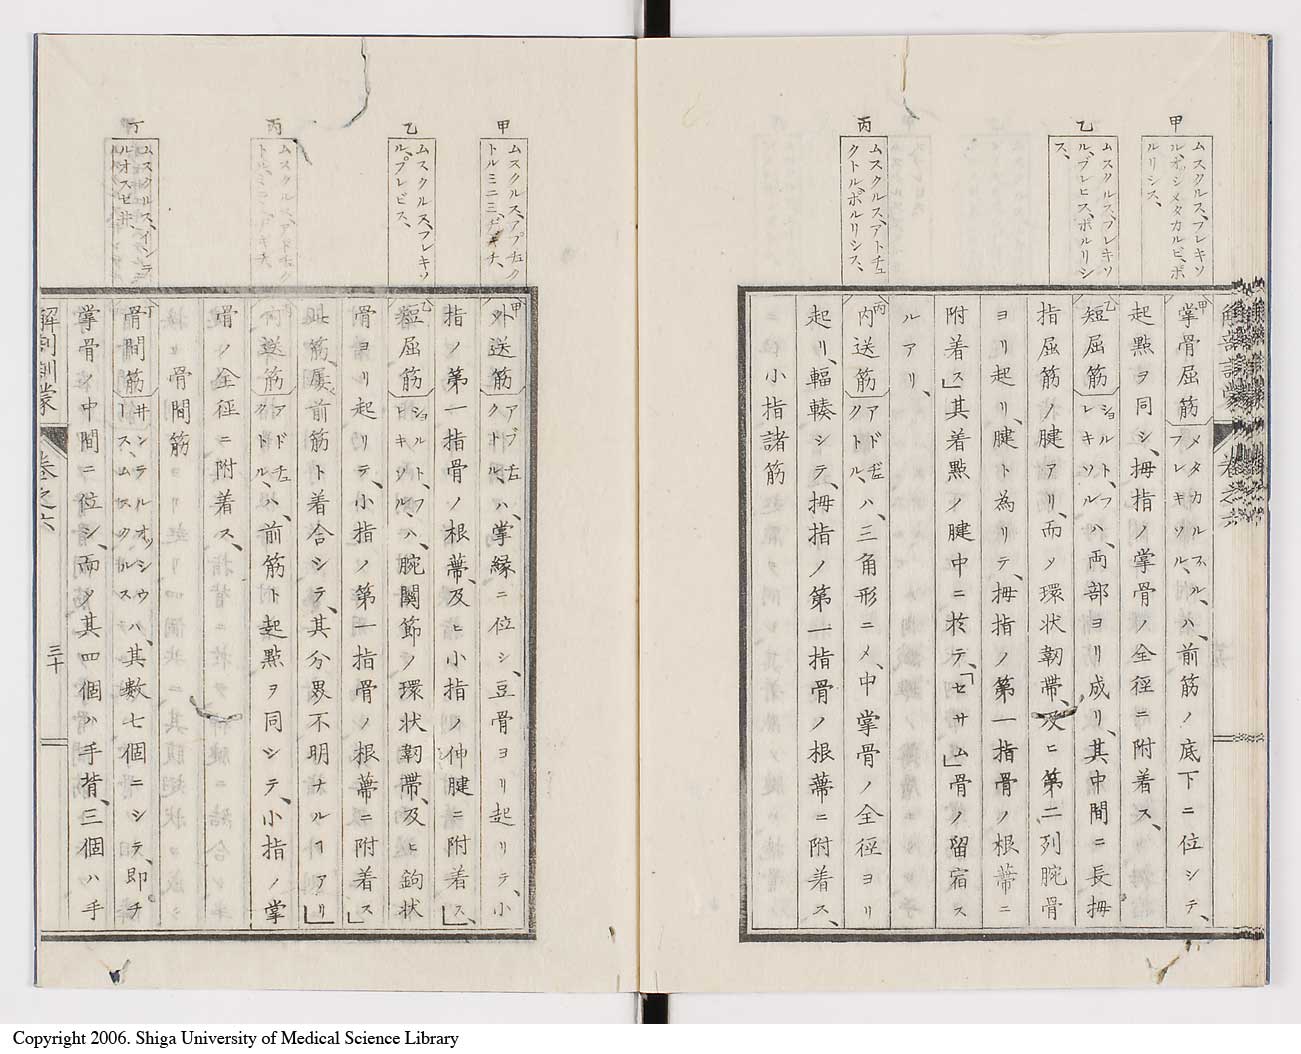 甲
ムスクルス、フレキソ
ル、オシ、メタカルピ、ポ
ルリシス、
乙
ムスクルス、フレキソ
ル、ブレヒス、ポルリシ
ス、
丙
ムスクルス、アトチュ
クトル、ポルリシス、
甲掌骨屈筋メタカルスフレキソル、ハ、前筋ノ底下ニ位シテ、
起點ヲ同シ、拇指ノ掌骨ノ全徑ニ附着ス、
乙短屈筋ショルト、フレキソルハ、両部ヨリ成リ、其中間ニ長拇
指屈筋ノ腱アリ、而ノ環状靭帯、及ヒ第二列腕骨
ヨリ起リ、腱ト為リテ、拇指ノ第一指骨ノ根蔕ニ
附着ス」其着點ノ腱中ニ於テ、「セサム」骨ノ留宿ス
ルアリ、
丙内送筋アドヂュクトル、ハ、三角形ニメ、中掌骨ノ全徑ヨリ
起リ、輻輳シテ、拇指ノ第一指骨ノ根蔕ニ附着ス、
小指諸筋
解剖訓蒙
巻之六
甲
ムスクルス、アプチュク
トル、ミニミ、ヂギチ、
乙
ムスクルス、フレキソ
ル、ブレビス、
丙
ムスクルス、アドチュク
丁
ムスクルス、インテラ
ルオスセ井
甲外送筋アブチュクトル、ハ、掌縁ニ位シ、豆骨ヨリ起リテ、小
指ノ第一指骨ノ根蔕、及ヒ小指ノ伸腱ニ附着ス」、
乙短屈筋ショルト、フレキソル、ハ、腕關節ノ環状靭帯、及ヒ鉤状
骨ヨリ起リテ、小指ノ第一指骨ノ根蔕ニ附着ス」
此筋、屡前筋ト着合シテ、其分界不明ナルヿアリ」
丙内送筋アドヂュクトル、ハ、前筋ト起點ヲ同シテ、小指ノ掌
骨ノ全徑ニ附着ス、
骨間筋
丁骨間筋井ンテルオッシウス、ムスクルスハ、其數七個ニシテ、即チ
掌骨ノ中間ニ位シ、而ノ其四個ハ手背、三個ハ手
解剖訓蒙
巻之六
三十
Copyright 2006. Shiga University of Medical Science Library